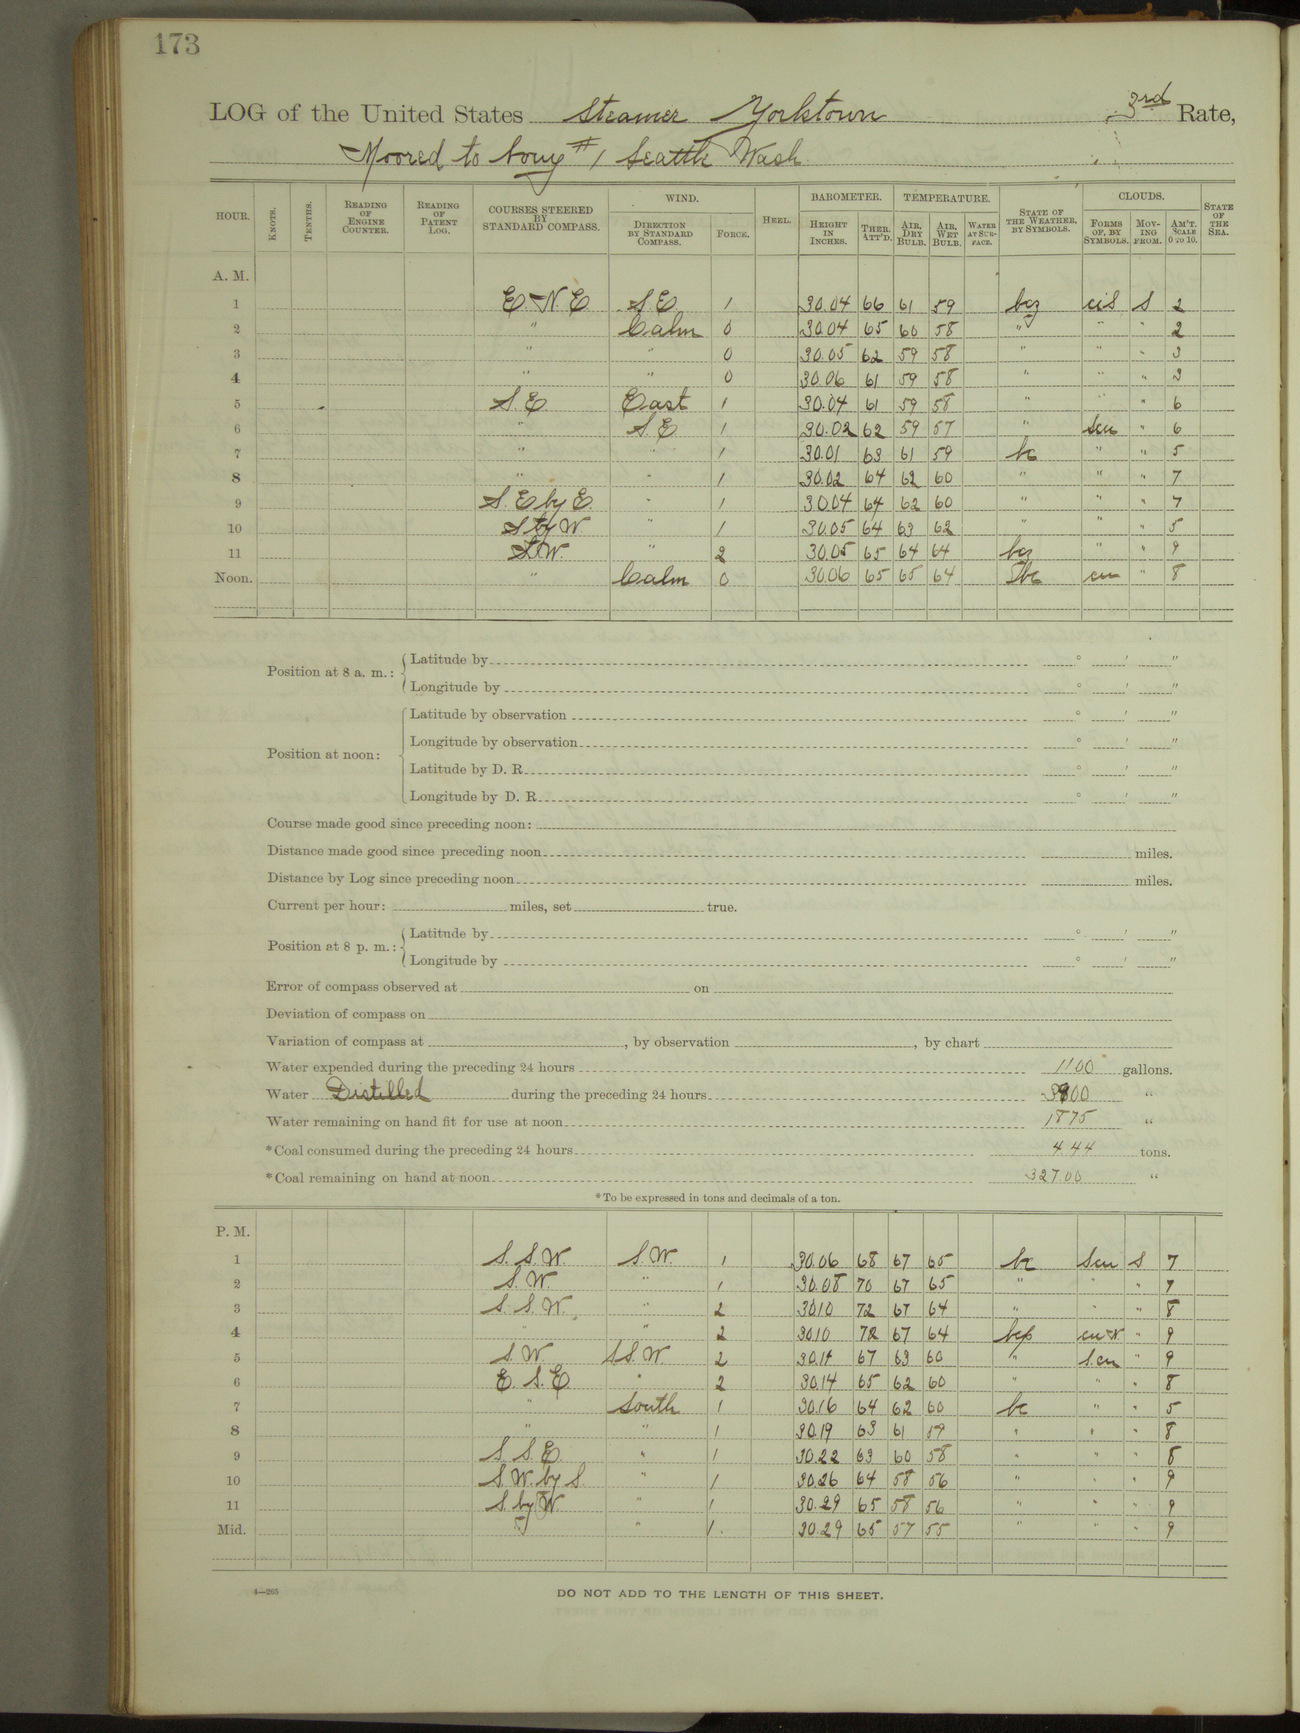 173
LOG of the United States Steamer Yorktown 3rd Rate,
Moored to bouy #1 Seattle Wash
HOUR. KNOTS. TENTHS. READING OF ENGINE COUNTER. READING OF PATENT LOG. COURSES STEERED BY STANDARD COMPASS. WIND. DIRECTION BY STANDARD COMPASS. FORCE. HEEL. BAROMETER. HEIGHT IN INCHES. THER. ATT'D. TEMPERATURE. AIR, DRY BULB. AIR, WET BULB. WATER AT SURFACE. STATE OF THE WEATHER, BY SYMBOLS. CLOUDS. FORMS OF, BY SYMBOLS. MOVING FROM. AM'T. SCALE 0 TO 10. STATE OF THE SEA.
A. M.
1 E. N. E S. E 1 30.04 66 61 59 bcz cis S 2
2 " Calm 0 30.04 65 60 58 " " " 2
3 " " 0 30.05 62 59 58 " " " 3
4 " " 0 30.06 61 59 58 " " " 3
5 S. E. East 1 30.04 61 59 58 " " " 6
6 " S. E 1 30.02 62 59 57 " Scu " 6
7 " " 1 30.01 63 61 59 bc " " 5
8 " " 1 30.02 64 62 60 " " " 7
9 S. E by E. " 1 30.04 64 62 60 " " " 7
10 S by W " 1 30.05 64 63 62 " " " 5
11 S.W. " 2 30.05 65 64 64 bcz " " 9
Noon. " Calm 0 30.06 65 65 64 bc cu " 8
Position at 8 a. m.: Latitude by ° ' "
Longitude by ° ' "
Position at noon: Latitude by observation ° ' "
Longitude by observation ° ' "
Latitude by D. R. ° ' "
Longitude by D. R. ° ' "
Course made good since preceding noon:
Distance made good since preceding noon miles.
Distance by Log since preceding noon miles.
Current per hour: miles, set true.
Position at 8 p. m.: Latitude by ° ' "
Longitude by ° ' "
Error of compass observed at on
Deviation of compass on
Variation of compass at , by observation , by chart
Water expended during the preceding 24 hours 1100 gallons.
Water Distilled during the preceding 24 hours "
Water remaining on hand fit for use at noon 1875 "
*Coal consumed during the preceding 24 hours 4.44 tons.
*Coal remaining on hand at noon 327.00 "
*To be expressed in tons and decimals of a ton.
P. M.
1 S. S. W. S. W. 1 30.06 68 67 65 bc Scu S 7
2 S. W. " 1 30.08 70 67 65 " " " 7
3 S. S. W. " 2 30.10 72 67 64 " " " 8
4 " " 2 30.10 72 67 64 bcp cu N " 9
5 S. W. S.S. W 2 30.11 67 63 60 " S.cu " 9
6 E. S. E. " 2 30.14 65 62 60 " " " 8
7 " South 1 30.16 64 62 60 bc " " 5
8 " " 1 30.19 63 61 59 " " " 8
9 S. S. E. " 1 30.22 63 60 58 " " " 8
10 S. W. by S. " 1 30.26 64 58 56 " " " 9
11 S. by W. " 1 30.29 65 58 56 " " " 9
Mid. " " 1. 30.29 65 57 55 " " " 9
4—265 DO NOT ADD TO THE LENGTH OF THIS SHEET.